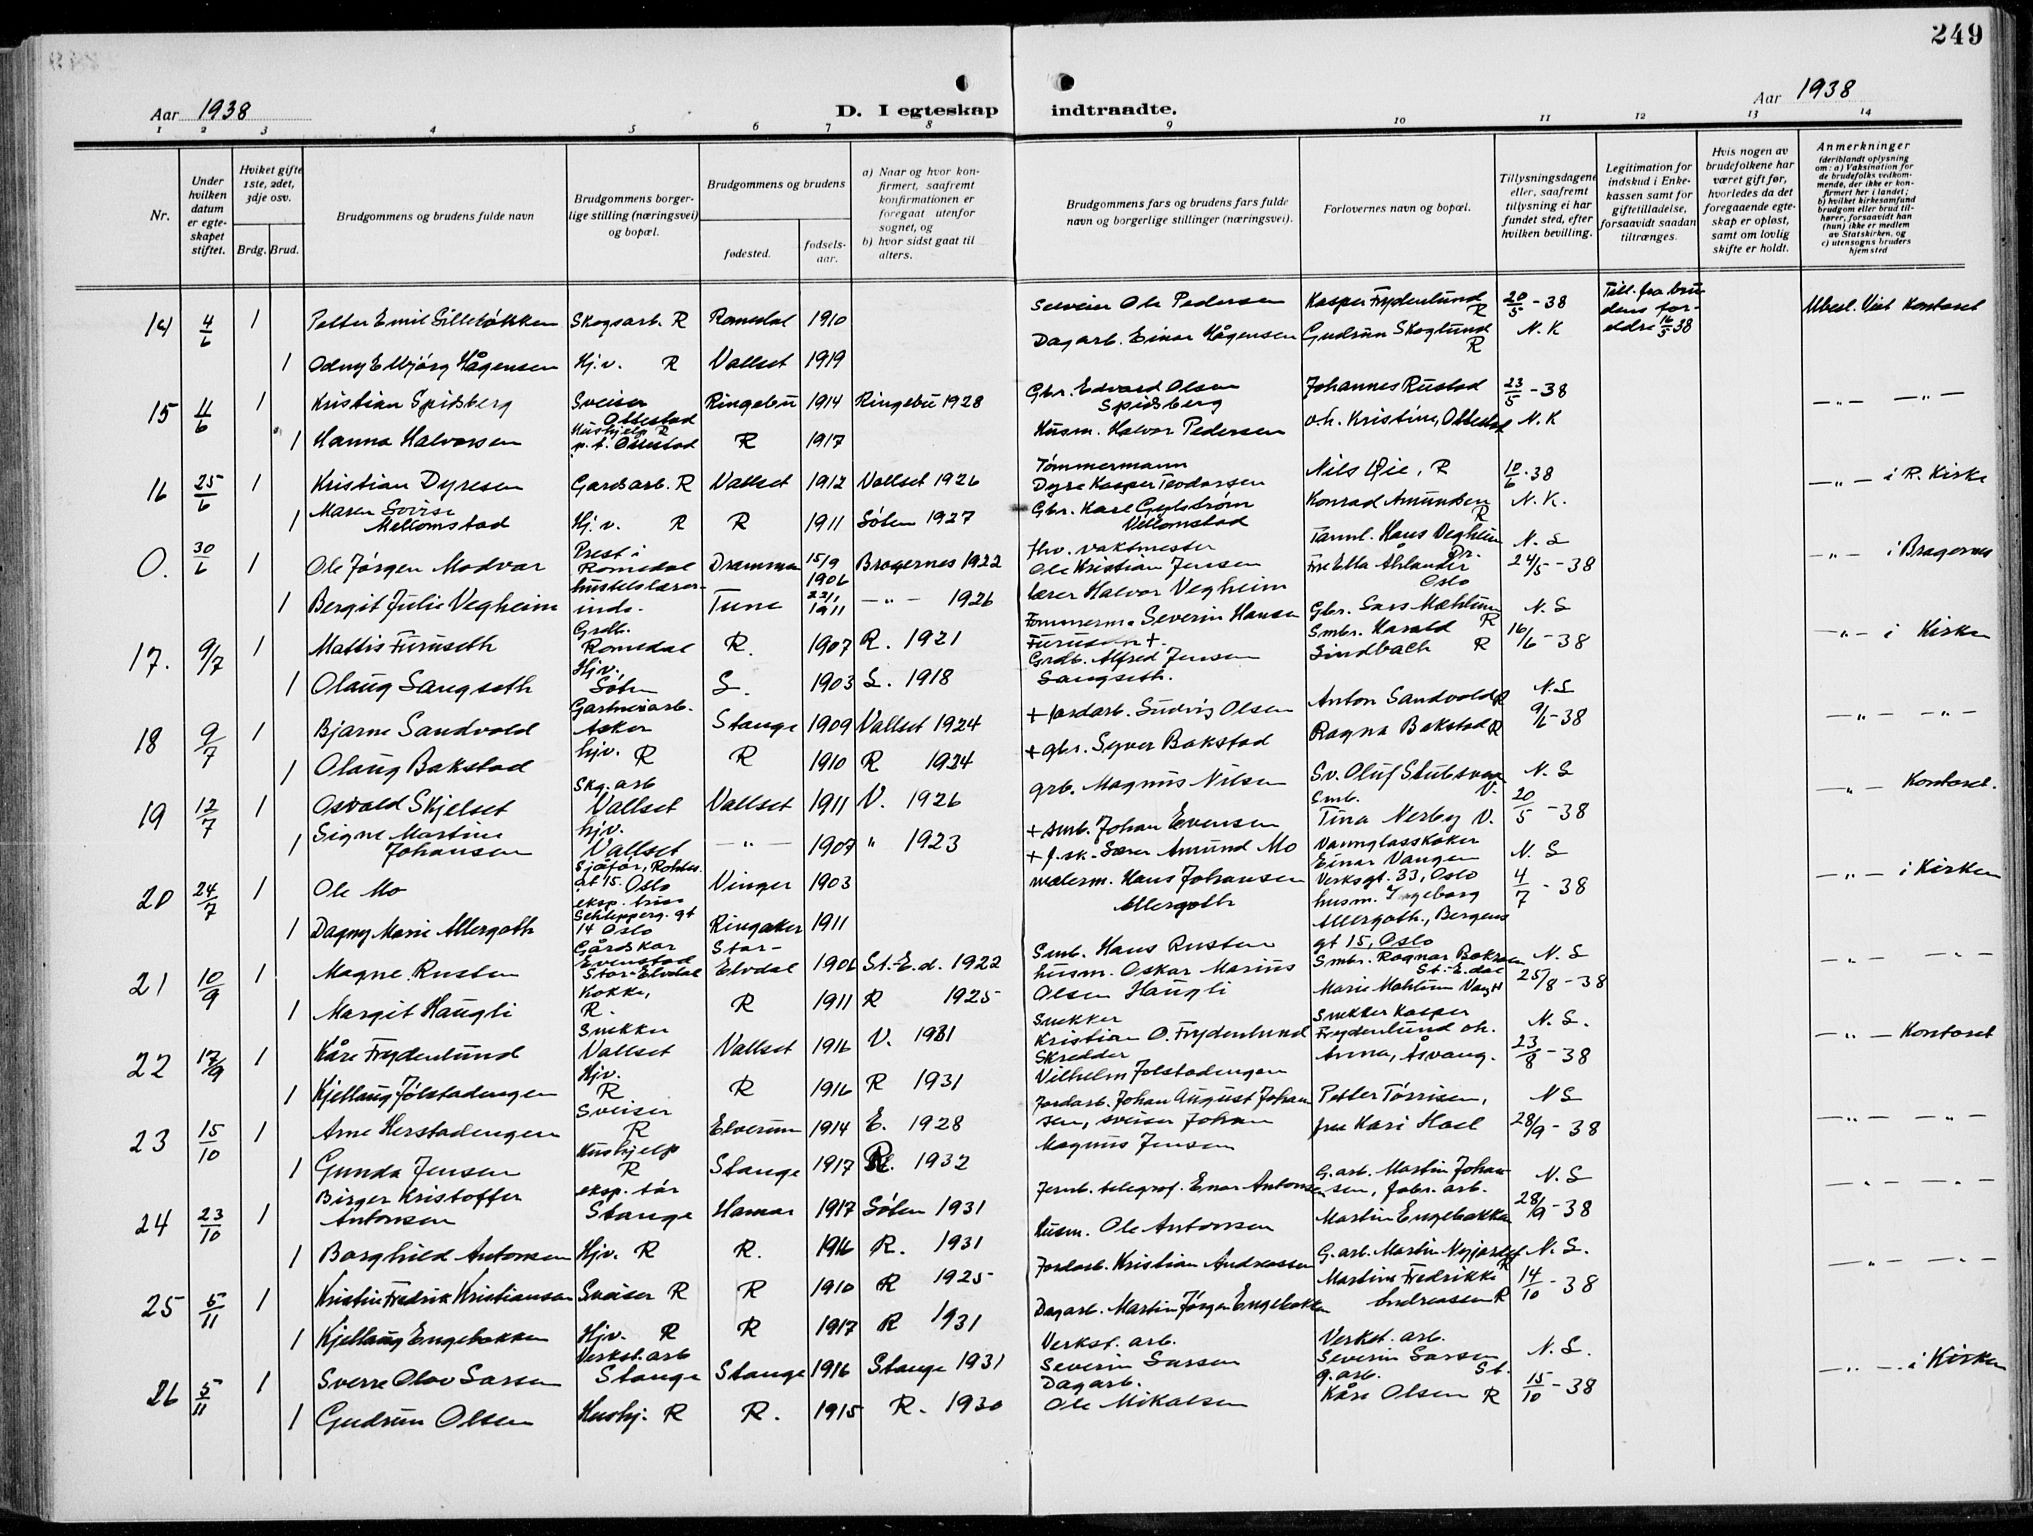 249
Aar 1938
D. I egteskap indtraadte.
Aar 1938
1 2 3 4 5 6 7 8 9 10 11 12 13 14
Nr.
Under hvilken datum er egteskapet stiftet.
Hviket gifte 1ste, 2det, 3dje osv.
Brdg. Brud.
Brudgommens og brudens fulde navn
Brudgommens borgerlige stilling (næringsvei) og bopæl.
Brudgommens og brudens
fødested.
fødselsaar.
a) Naar og hvor konfirmert, saafremt konfirmationen er foregaat utenfor sognet, og
b) hvor sidst gaat til alters.
Brudgommens fars og brudens fars fulde navn og borgerlige stillinger (næringsvei).
Forlovernes navn og bopæl.
Tillysningsdagene eller, saafremt tillysning ei har fundet sted, efter hvilken bevilling.
Legitimation for indskud i Enkekassen samt for giftetilladelse, forsaavidt saadan tiltrænges.
Hvis nogen av brudefolkene har været gift før, hvorledes da det foregaaende egteskap er opløst, samt om lovlig skifte er holdt.
Anmerkninger
(deriblandt oplysning om: a) Vaksination for de brudefolks vedkommende, der ikke er konfirmert her i landet; b) hvilket kirkesamfund brudgom eller brud tilhører, forsaavidt han (hun) ikke er medlem av Statskirken, og c) utensogns bruders hjemsted
14 4/6 1 Petter Emil Sillebökken Skogsarb. R Romedal 1910 Selveier Ole Pedersen Kasper Frydenlund R 20/5 - 38 Till. fra brudens foreldre 16/5 38 Ubesl. Viet Kontoret
1 Odny Elbjörg Hågensen Hj.v. R Vallset 1919 Dagarb. Einar Hågensen Gudrun Skoglund R N. K
15 11/6 1 Kristian Spidsberg Sveiser Ottestad Ringebu 1914 Ringebu 1928 Gbr. Edvard Olsen Spidsberg Johannes Rustad 23/5 - 38 -„- -„-
1 Hanna Halvorsen Hushjelp R p.t. Ottestad R 1917 Husm. Halvor Pedersen o.h. Kristine, Ottestad N. K
16 25/6 1 Kristian Dyresen Gardsarb. R Vallset 1912 Vallset 1926 Tømmermann Dyre Kasper Teodorsen Nils Øie, R 10/6 - 38 -„- i R. Kirke
1 Maren Lovise Mellomstad Hj.v. R R 1911 Søten 1927 Gbr. Karl Mellomstad Konrad Amundsen R N. K.
0. 30/6 1 Ole Jörgen Modvar Prest i Romedal Drammen 15/9 1906 Bragernes 1922 fhv. vaktmester Ole Kristian Jensen Tannl. Hans Vegheim Dr. N. L 24/5 - 38 -„- i Bragernes
1 Bergit Julie Vegheim husstelslærerinde. Tune 22/1 1911 -„- 1926 lærer Halvor Vegheim Frk Ella Ahlander Oslo
17. 9/7 1 Mattis Furuseth Grdb. Romedal R. 1907 R. 1921 Tømmerm. Severin Hansen Furuseth +. Gbr. Lars Mæhlum R N. L 16/6 - 38 -„- i Kirken
1 Olaug Langseth Hjv. L. 1903 L. 1918 Grdb. Alfred Jensen Langseth. Smbr. Harald Lindbach R
18 9/7 1 Bjarne Sandvold Gartneriarb. Asker Stange 1909 Vallset 1924 + Jordarb. Ludvig Olsen Anton Sandvold R N. L 9/6 - 38 -„- -„-
1 Olaug Bakstad hjv. R R 1910 R 1924 + gbr. Syver Bakstad Ragna Bakstad R
19 12/7 1 Osvald Skjelset Skg. arb Vallset Vallset 1911 V. 1926 grb. Magnus Nilsen Sv. Oluf V. N. L 20/5 - 38 -„- Kontoret.
1 Signe Martine Johansen hjv. Vallset -„- 1907 „ 1923 + smb. Johan Evensen Smb. Tina Nerby V.
20 24/7 1 Ole Mo Sjåfør, gt 15. Oslo Vinger 1903 + f.sk. Lærer Amund Mo Einar Vangen Verksgt. 33, Oslo N. L 4/7 - 38 -„- i Kirken
1 Dagny Marie Allergoth eksp. Schleppegr. gt 14 Oslo Ringsaker 1911 malerm. Hans Johansen Allergoth husm. Ingeborg Allergoth., Bergens gt 15, Oslo
21 10/9 1 Magne Rusten Gårdskar Evenstad Stor-Elvdal Stor-Elvdal 1906 St.-E.d. 1922 Smb. Hans Rusten Smbr. Ragnar St.-E.dal N. L 25/8 - 38 -„- -„-
1 Margit Haugli Kokke, R. R 1911 R 1925 husm. Oskar Marius Olsen Haugli Marie Mæhlum Vang H
22 17/9 1 Kåre Frydenlund Snekker Vallset Vallset 1916 V. 1931 Snekker Kristian O. Frydenlund Snekker Kasper Frydenlund oh. N. L. 23/8 - 38 -„- Kontoret
1 Kjellaug Jølstadengen Hjv. R R 1916 R 1931 Skredder Vilhelm Jolstadengen Anna, Åsvang.
23 15/10 1 Arne Herstadengen Sveiser R Elverum 1914 E. 1928 Jordarb. Johan August Johansen, Petter Tørrisen, N L 28/9 - 38 -„- -„-
1 Gunda Jensen Hushjelp R Stange 1917 R. 1932 sveiser Johan Magnus Jensen frk Kari Hoel
24 23/10 1 Birger Kristoffer Antonsen eksp.tør Stange Hamar 1917 Søten 1931 Jernb. telegraf. Enar Antonsen G. arb. Martin Johansen, fabr. arb. N. L 28/9 - 38 -„- -„-
1 Borghild Antonsen Hjv. R R. 1916 R. 1931 Husm. Ole Antonsen Martin Engebakken
25 5/11 1 Kristin Fredrik Kristiansen Sveiser R R 1910 R 1925 Jordarb. Kristian Andreassen G. arb. Martin R N. L. 14/10 - 38 -„- -„-
1 Kjellaug Engebakken Hjv. R R 1917 R 1931 Dagarb. Martin Jørgen Engebakken Martine Fredrikke Andreassen R
26 5/11 1 Sverre Olav Larsen Verkst. arb Stange Stange 1916 Stange 1931 Verkst. arb. Severin Larsen Verkst. arb. Severin Larsen St. N. L. 15/10 - 38 -„- i Kirken
1 Gudrun Olsen Hushj. R R. 1915 R. 1930 Dagarb. Ole Mikalsen g.arb. Kåre Olsen R